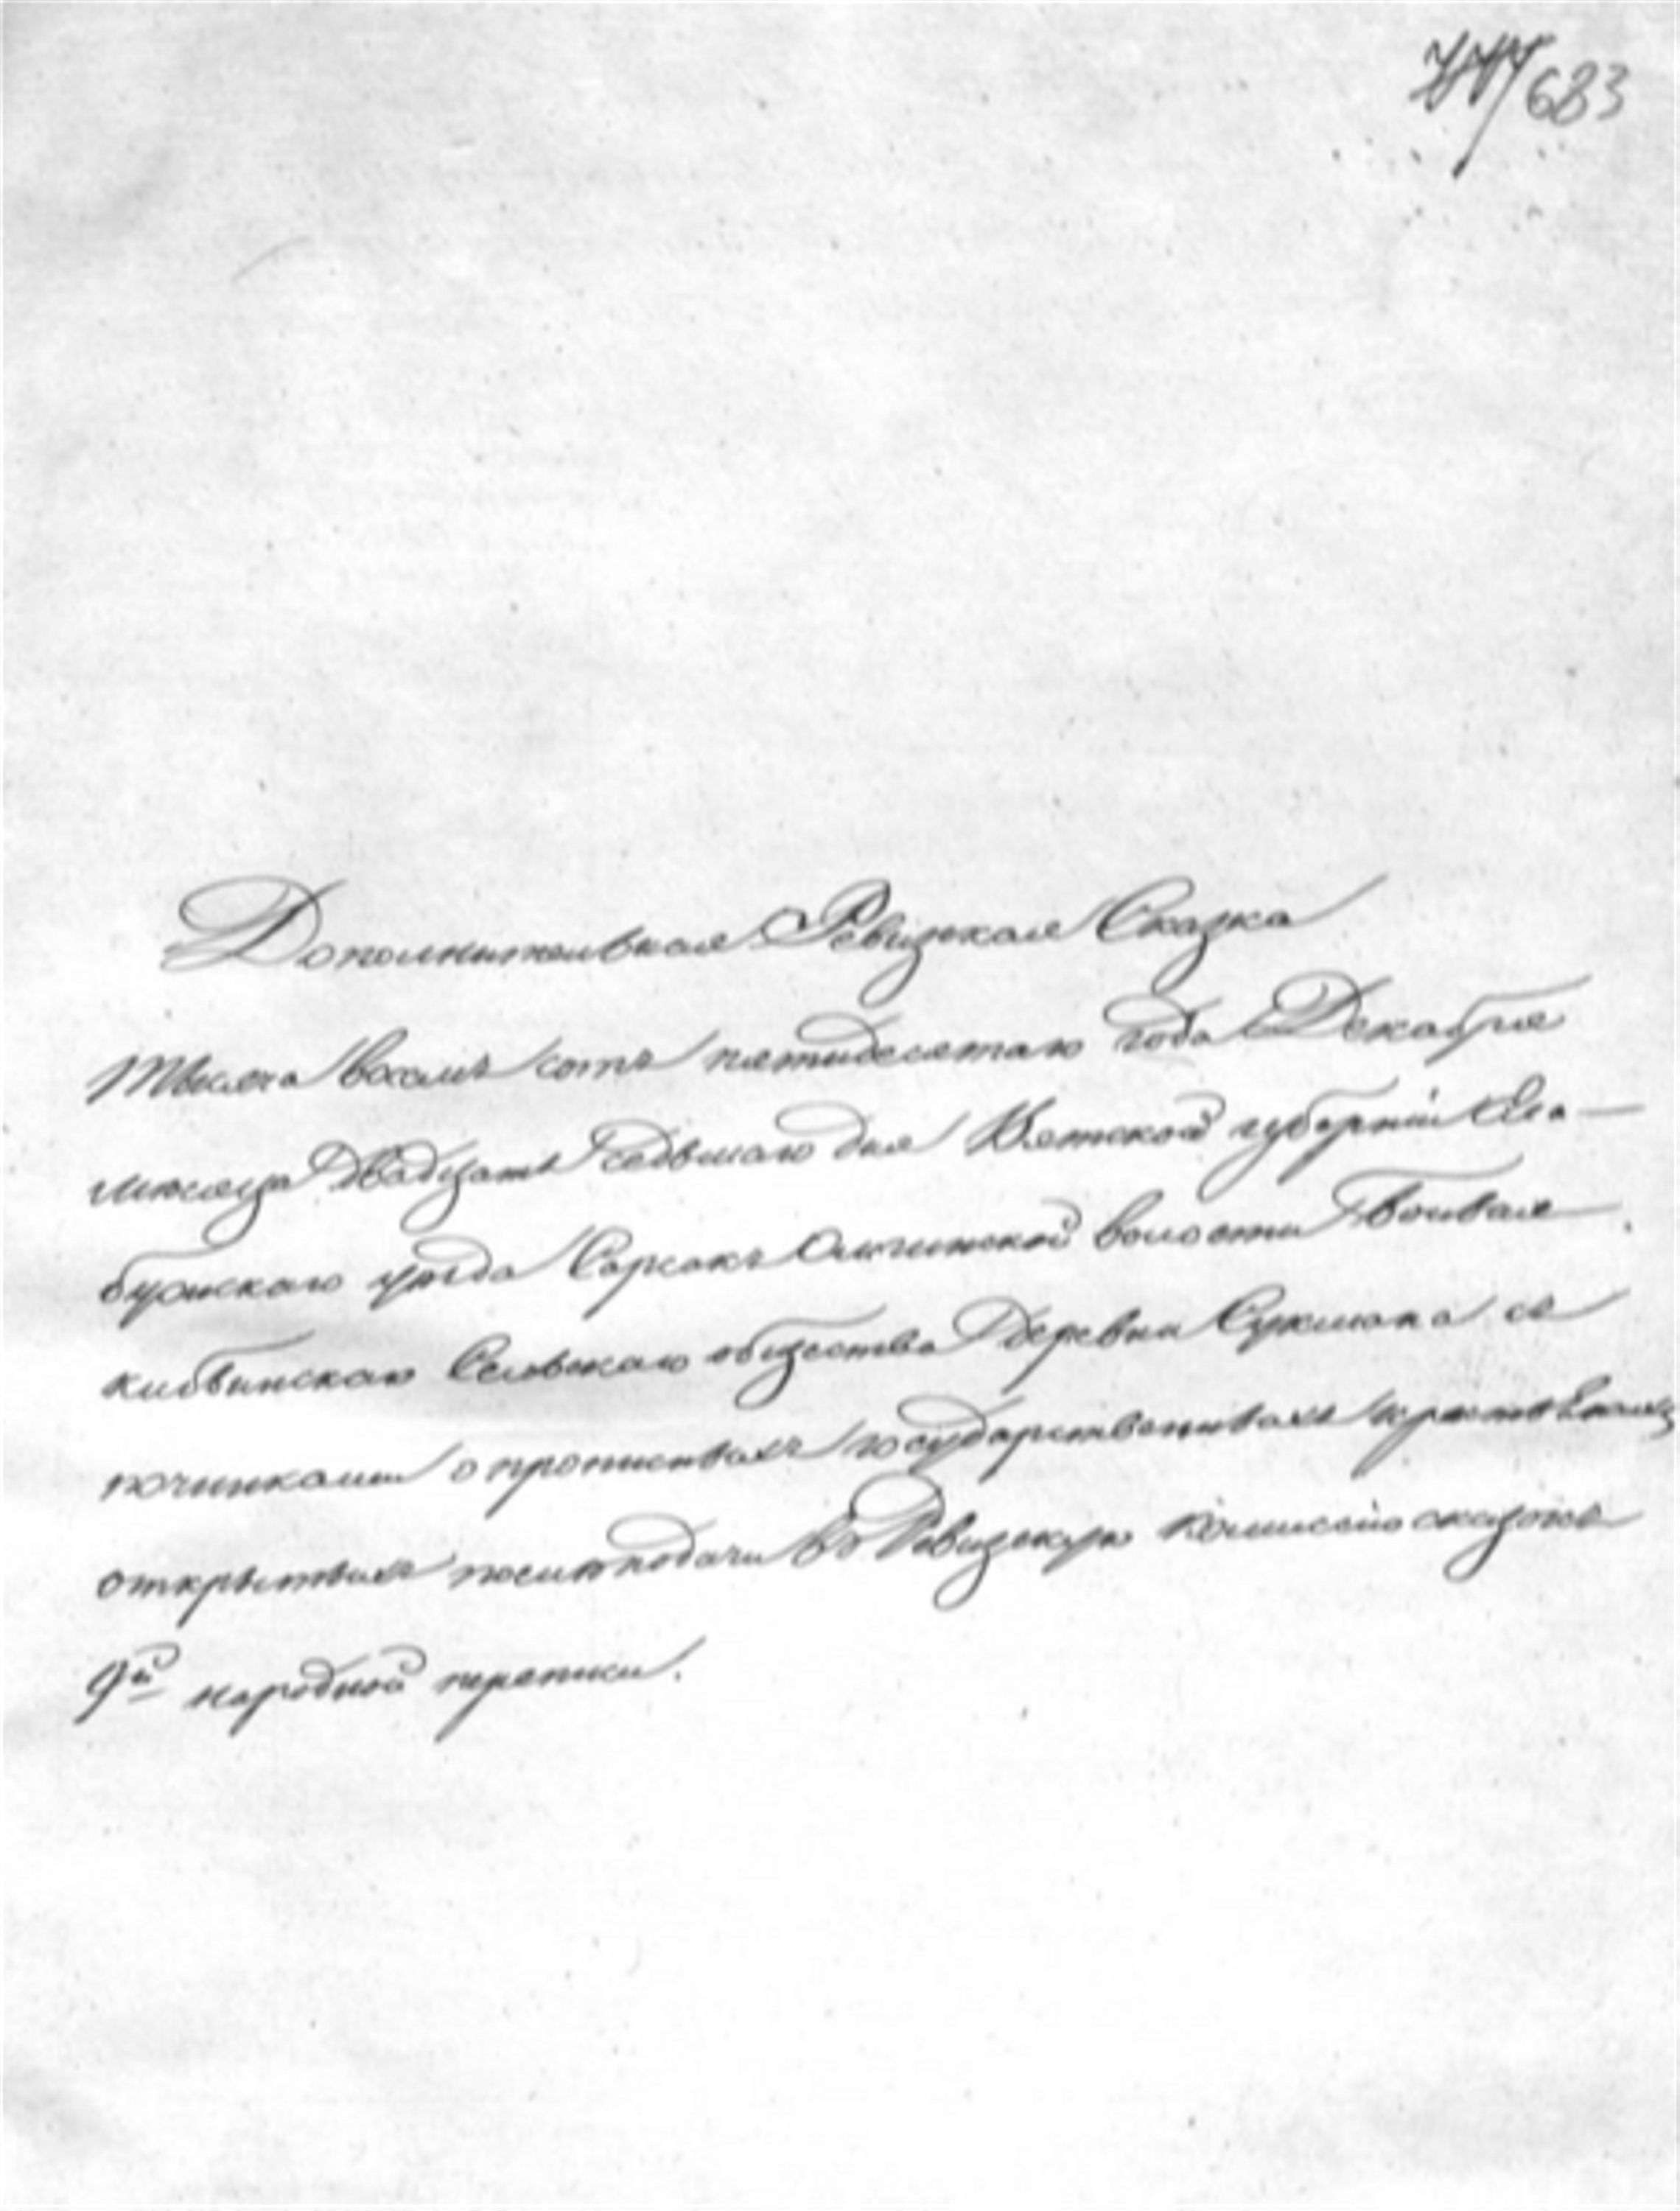 683
Дополнительная Ревизкая Сказка
Тысяча восемь сотъ пятидесятаго года Декабря
месяца Двадцать седьмаго дня Вятской губерніи Ела-
бужскаго уѣзда Сарсакъ Омгинской волости
Сельскаго общества Деревни Сукмана съ
починками о прописныхъ государственныхъ крестьянахъ
открытыхъ послѣ подачи въ Ревизскую Комисію сказокъ
9й народной переписи.